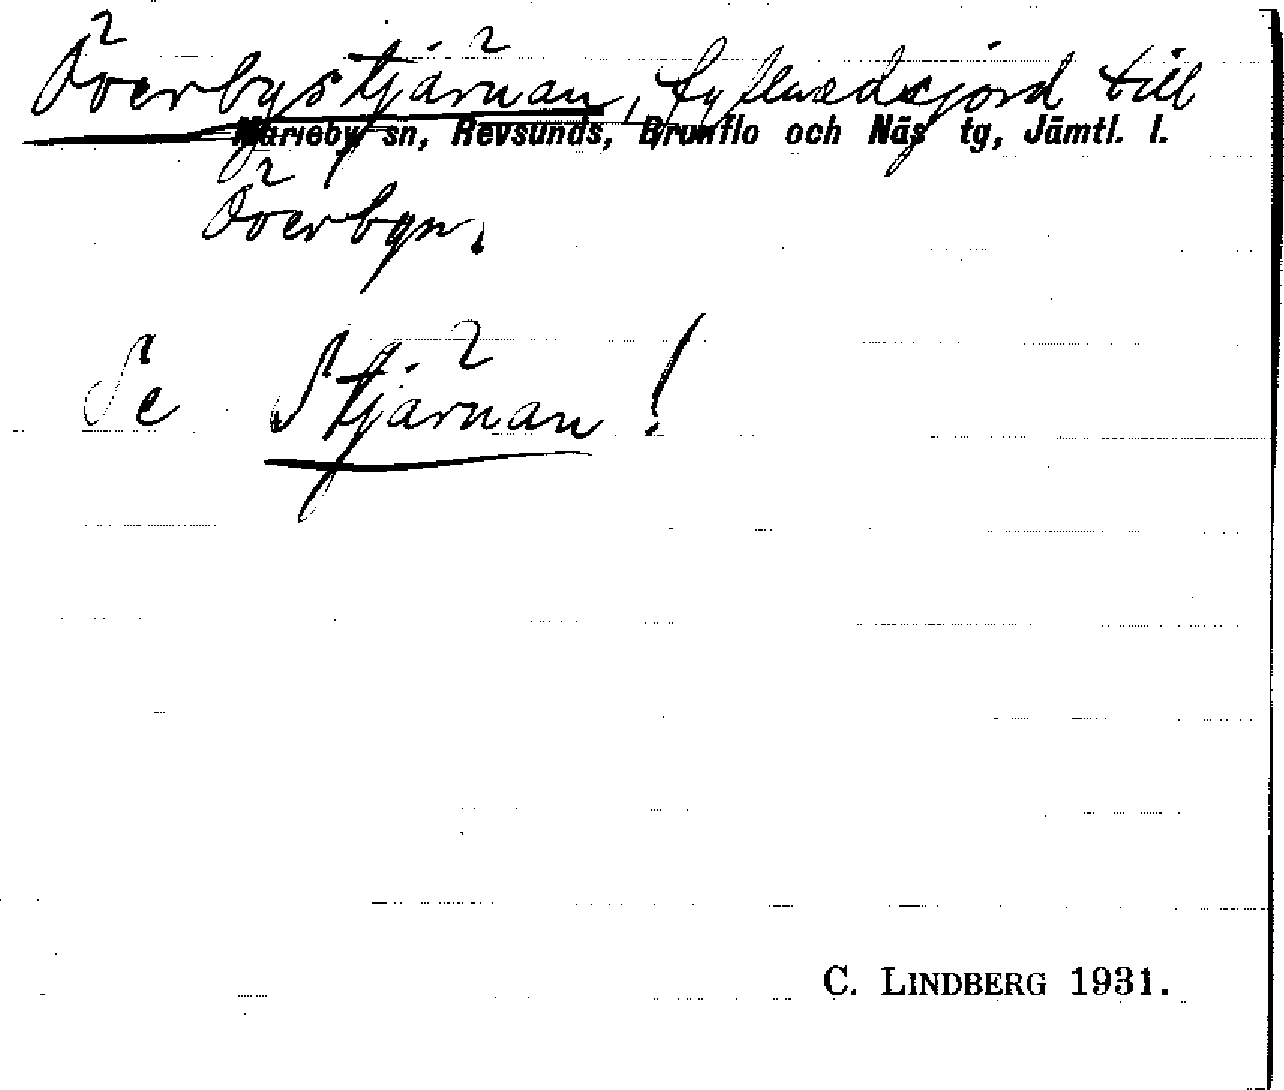 Överbystjärnan, fyllnadsjord till
Marieby sn, Revsunds, Brunflo och Näs tg, Jämtl. l.
Överbyn.
Se Stjärnan!
C. LINDBERG 1931.